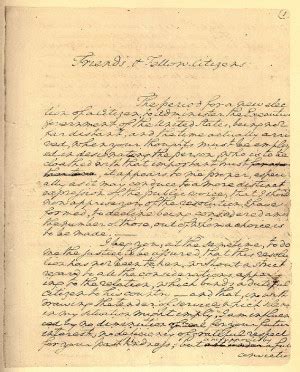 (1
Friends, & Fellow-Citizens
The period for a new elec-
tion of a Citizen, to administer the Executive
Government of the United States, being not
far distant, and the time actually arri-
ved, when your thoughts must be employ-
ed in designating the person, who is to be
cloathed with that important trust
it appears to me proper, especi-
ally as it may conduce to a more distinct
expression of the public voice, that I should
now apprise you of the resolution I have
formed, to decline being considered among
the number of those, out of whom a choice is
to be made.
I beg you, at the same time, to do
me the justice to be assured, that this resolu-
tion has not been taken, without a strict
regard to all the considerations appertain-
ing to the relation, which binds a dutiful
citizen to his country, and that, in with-
drawing the tender of service which silence
in my situation might imply, I am influen-
ced by no diminution of zeal for your future
interest, no deficiency of grateful respect
for your past kindness; but